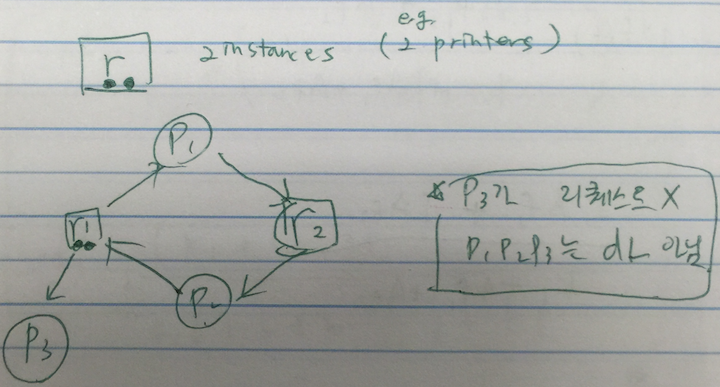 e.g.
r 2 instances (2 printers)
P1
r1 r2
P2
P3
* P3가 리퀘스트 X
P1 P2 P3는 dL 아님